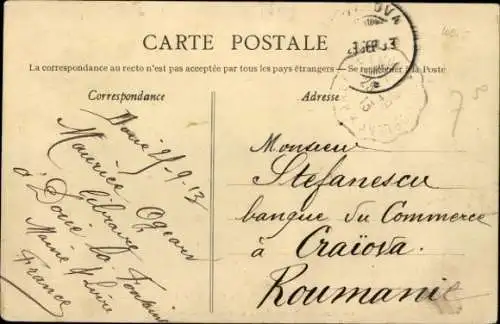 CARTE POSTALE
La correspondance au recto n'est pas acceptée par tous les pays étrangers — Se renseigner à la Poste
Correspondance
Adresse
Doué 25-9-13
Maurice Ogeau
libraire
à Doué la Fontaine
Maine & Loire
France
Monsieur
Stefanescu
banque du Commerce
à Craïova.
Roumanie